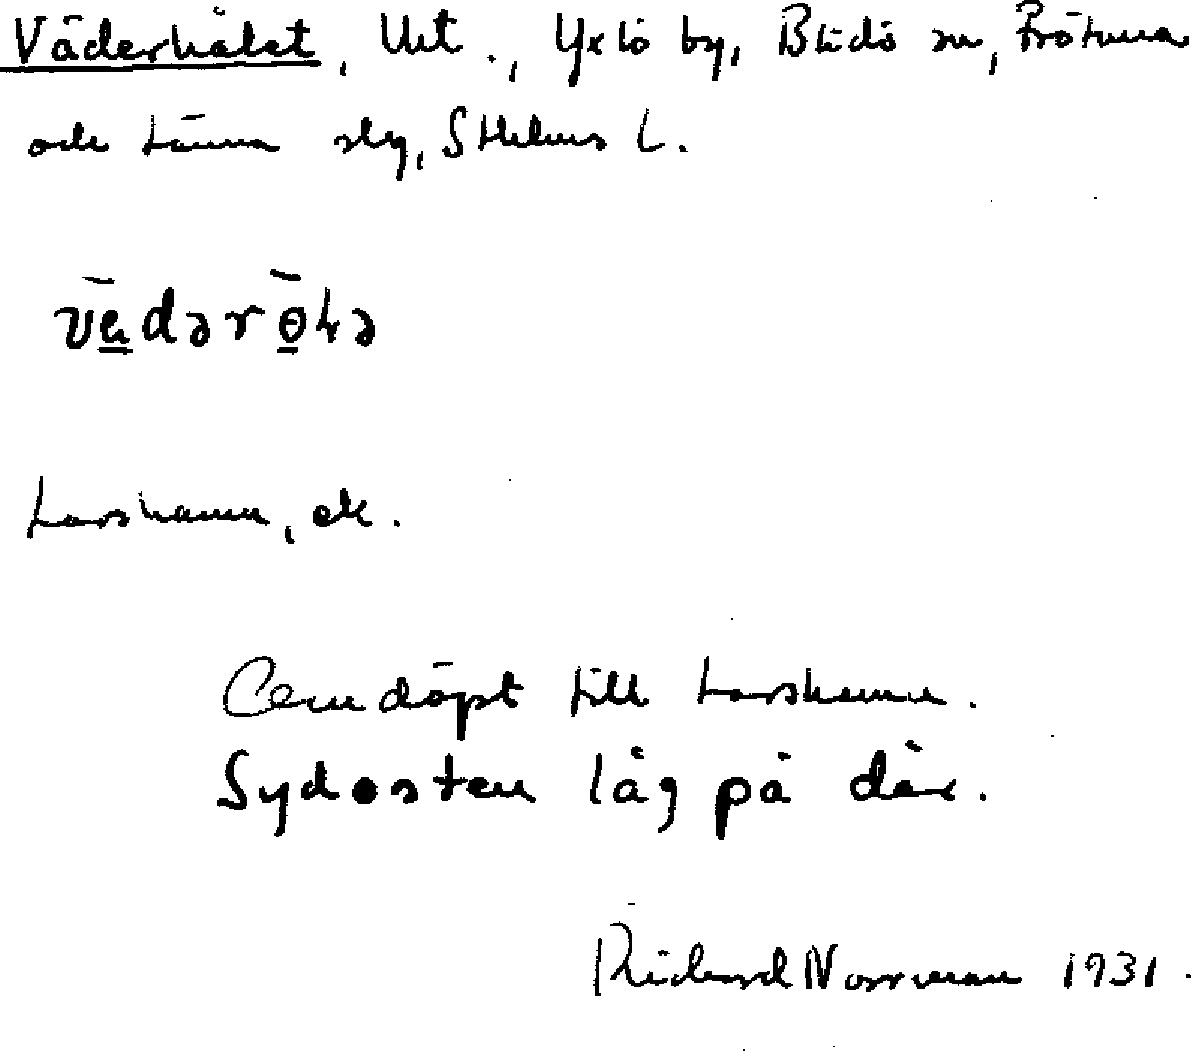 Väderhålet, Utt., Yxlö by, Blidö sn, Frötuna
och Länna slg, Sthlms l.
vädəröhə
Larshamn, ek.
Omdöpt till Larshamn.
Sydosten låg på där.
Rickard Norrman 1931.